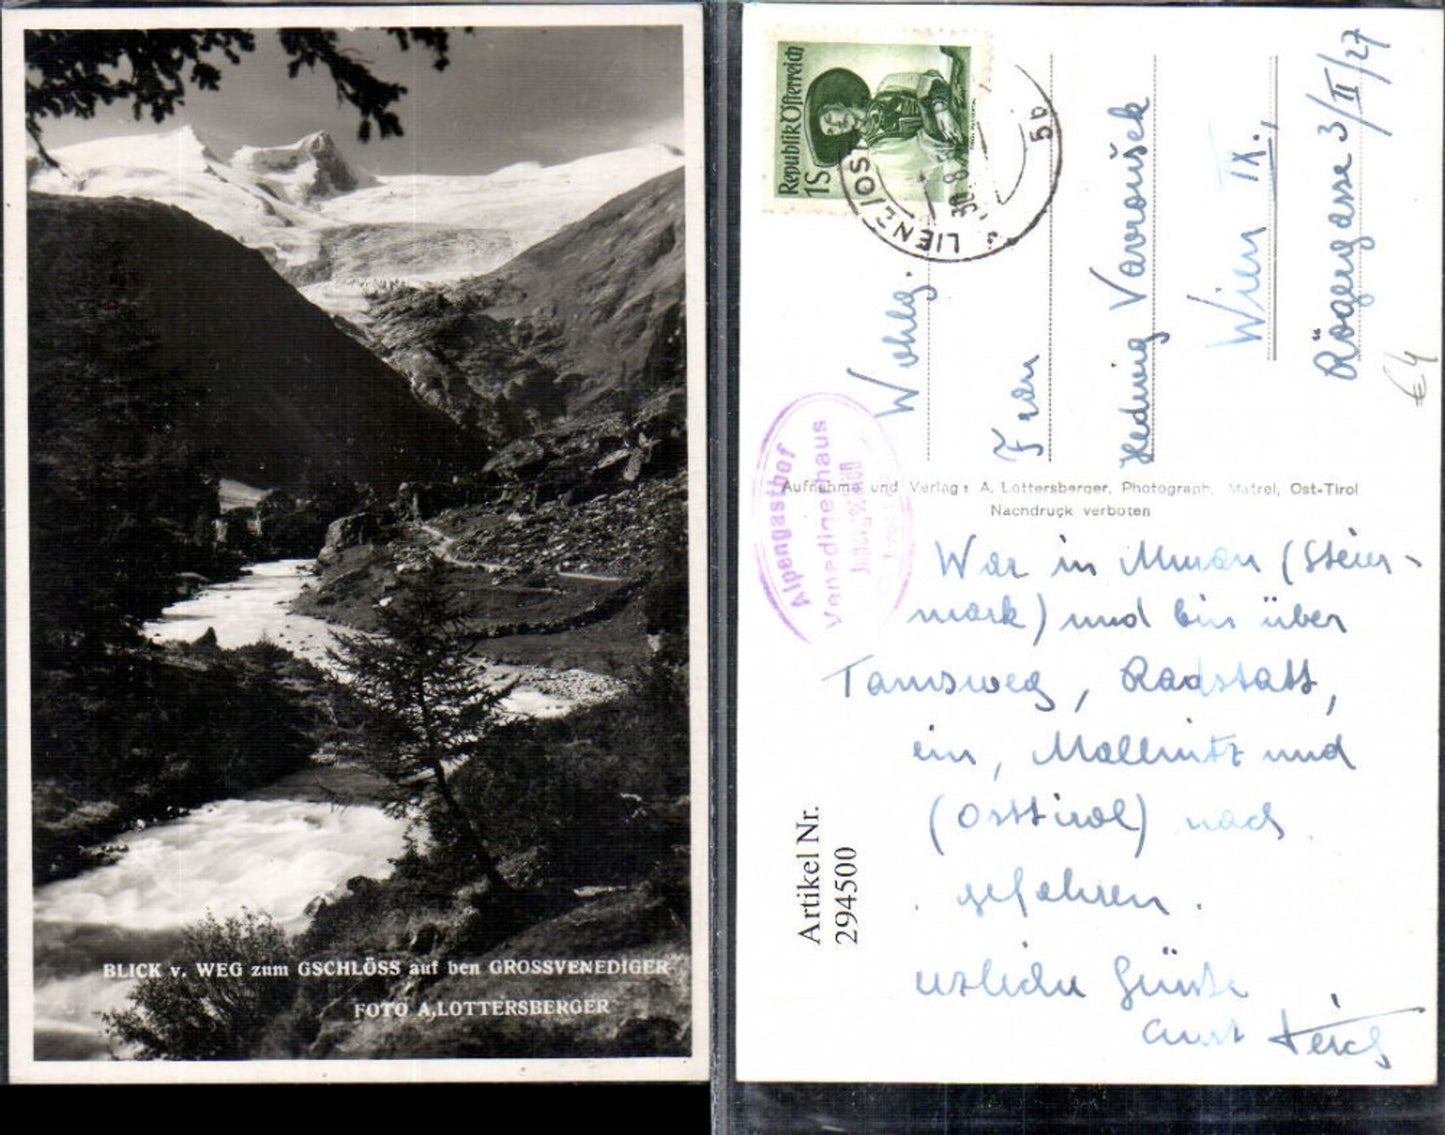 BLICK v. WEG zum GSCHLÖSS auf den GROSSVENEDIGER
FOTO A.LOTTERSBERGER
Republik Österreich
1S
LIENZ
OST
30. 8.
5b
Wohlg.
Frau
Hedwig Vavroušek
Wien IX.,
Rögergasse 3/II/27
€ 4
Alpengasthof
Venedigerhaus
Aufnahme und Verlag: A. Lottersberger, Photograph, Matrei, Ost-Tirol
Nachdruck verboten
War in Murau (Steier-
mark) und bin über
Tamsweg, Radstatt,
ein, Mallnitz und
(Osttirol) nach
gefahren.
Grüße
Curt
Artikel Nr.
294500